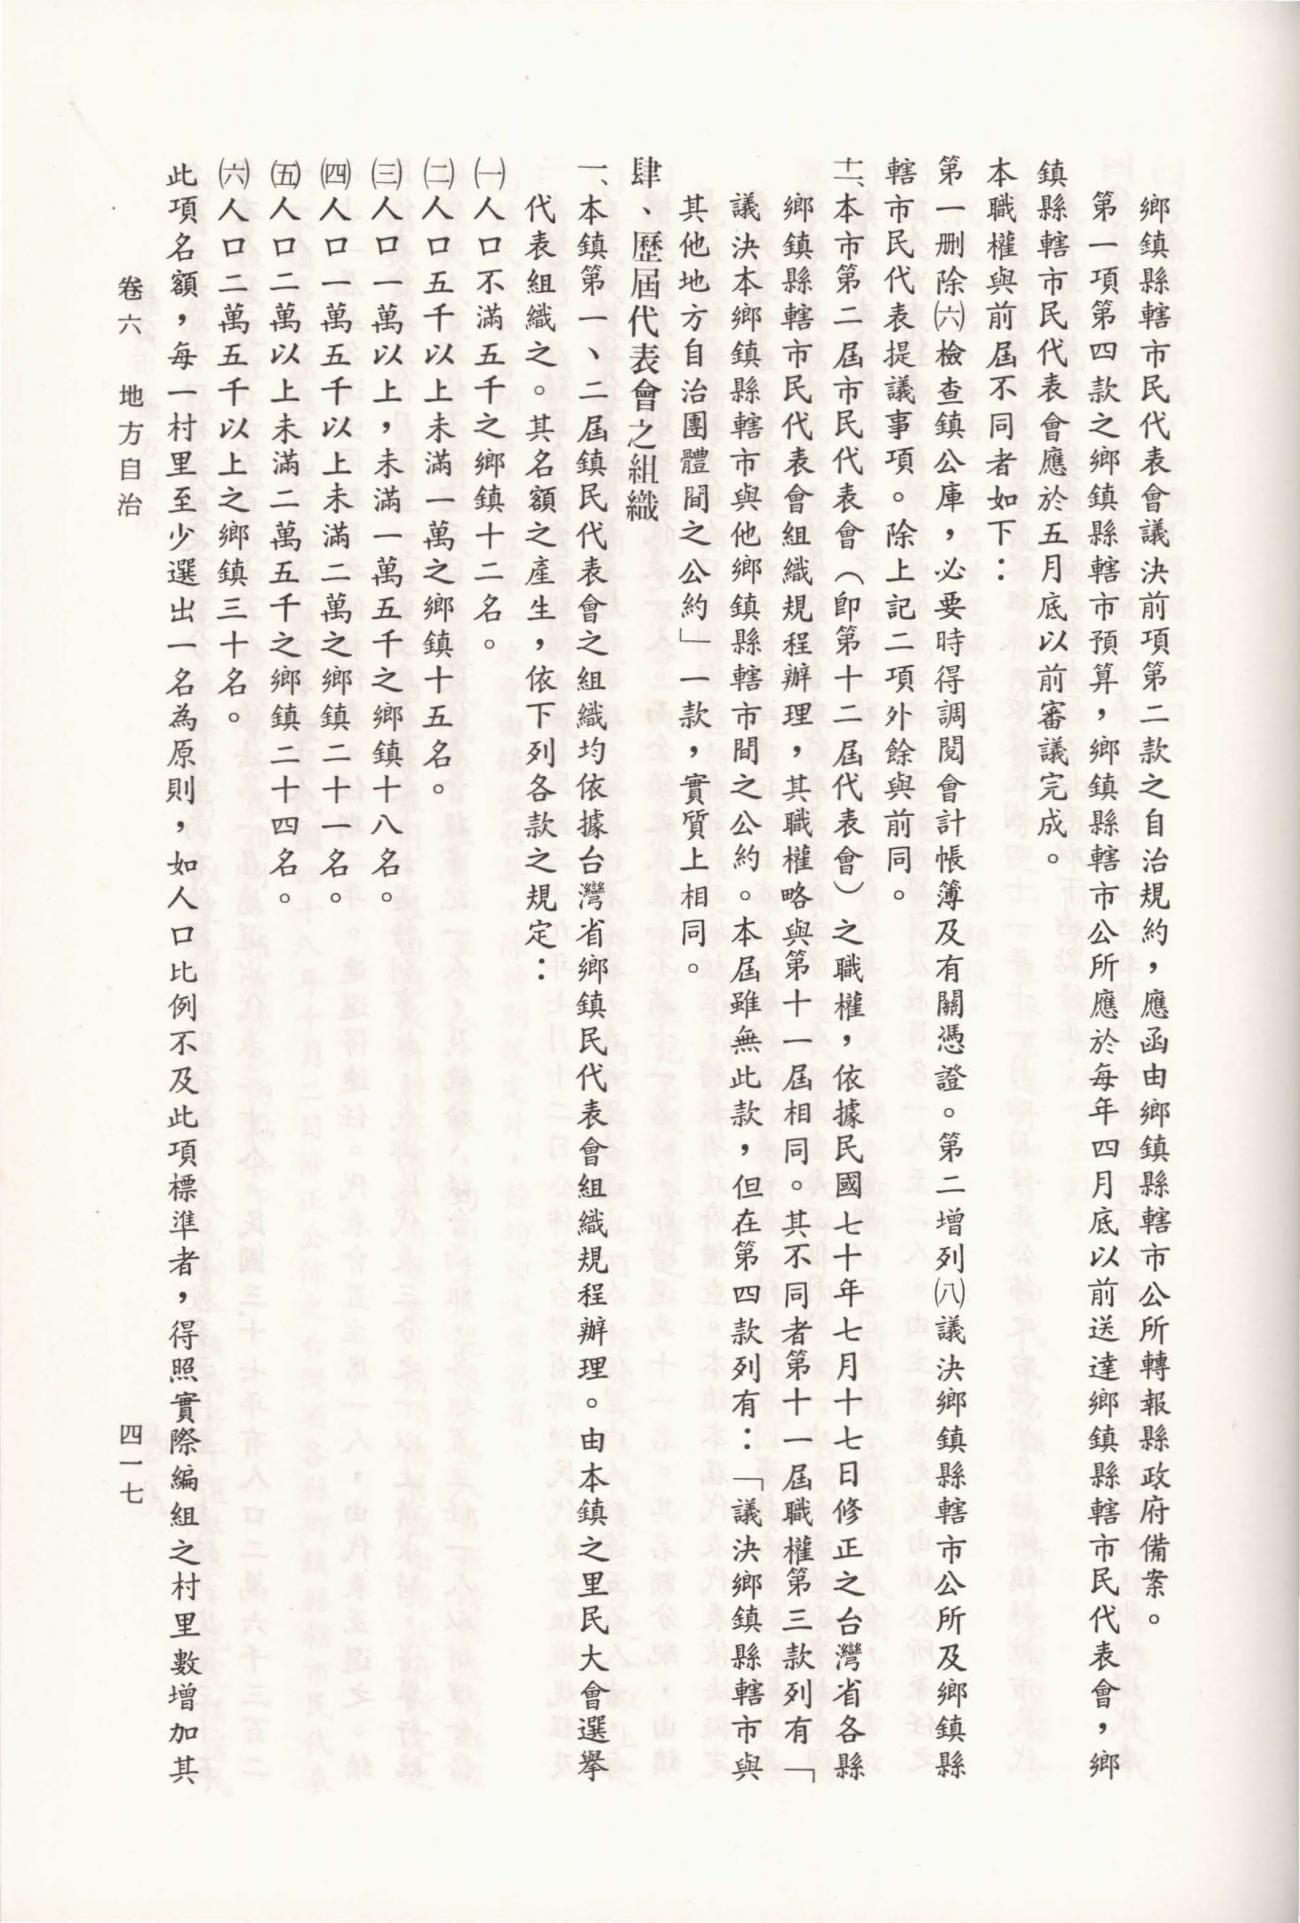 鄉鎮縣轄市民代表會議決前項第二款之自治規約，應函由鄉鎮縣轄市公所轉報縣政府備案。
第一項第四款之鄉鎮縣轄市預算，鄉鎮縣轄市公所應於每年四月底以前送達鄉鎮縣轄市民代表會，鄉
鎮縣轄市民代表會應於五月底以前審議完成。
本職權與前屆不同者如下：
第一刪除㈥檢查鎮公庫，必要時得調閱會計帳簿及有關憑證。第二增列㈧議決鄉鎮縣轄市公所及鄉鎮縣
轄市民代表提議事項。除上記二項外餘與前同。
十二、本市第二屆市民代表會（即第十二屆代表會）之職權，依據民國七十年七月十七日修正之台灣省各縣
鄉鎮縣轄市民代表會組織規程辦理，其職權略與第十一屆相同。其不同者第十一屆職權第三款列有「
議決本鄉鎮縣轄市與他鄉鎮縣轄市間之公約。本屆雖無此款，但在第四款列有：「議決鄉鎮縣轄市與
其他地方自治團體間之公約」一款，實質上相同。
肆、歷屆代表會之組織
一、本鎮第一、二屆鎮民代表會之組織均依據台灣省鄉鎮民代表會組織規程辦理。由本鎮之里民大會選舉
代表組織之。其名額之產生，依下列各款之規定：
㈠人口不滿五千之鄉鎮十二名。
㈡人口五千以上未滿一萬之鄉鎮十五名。
㈢人口一萬以上，未滿一萬五千之鄉鎮十八名。
㈣人口一萬五千以上未滿二萬之鄉鎮二十一名。
㈤人口二萬以上未滿二萬五千之鄉鎮二十四名。
㈥人口二萬五千以上之鄉鎮三十名。
此項名額，每一村里至少選出一名為原則，如人口比例不及此項標準者，得照實際編組之村里數增加其
卷六　地方自治
四一七